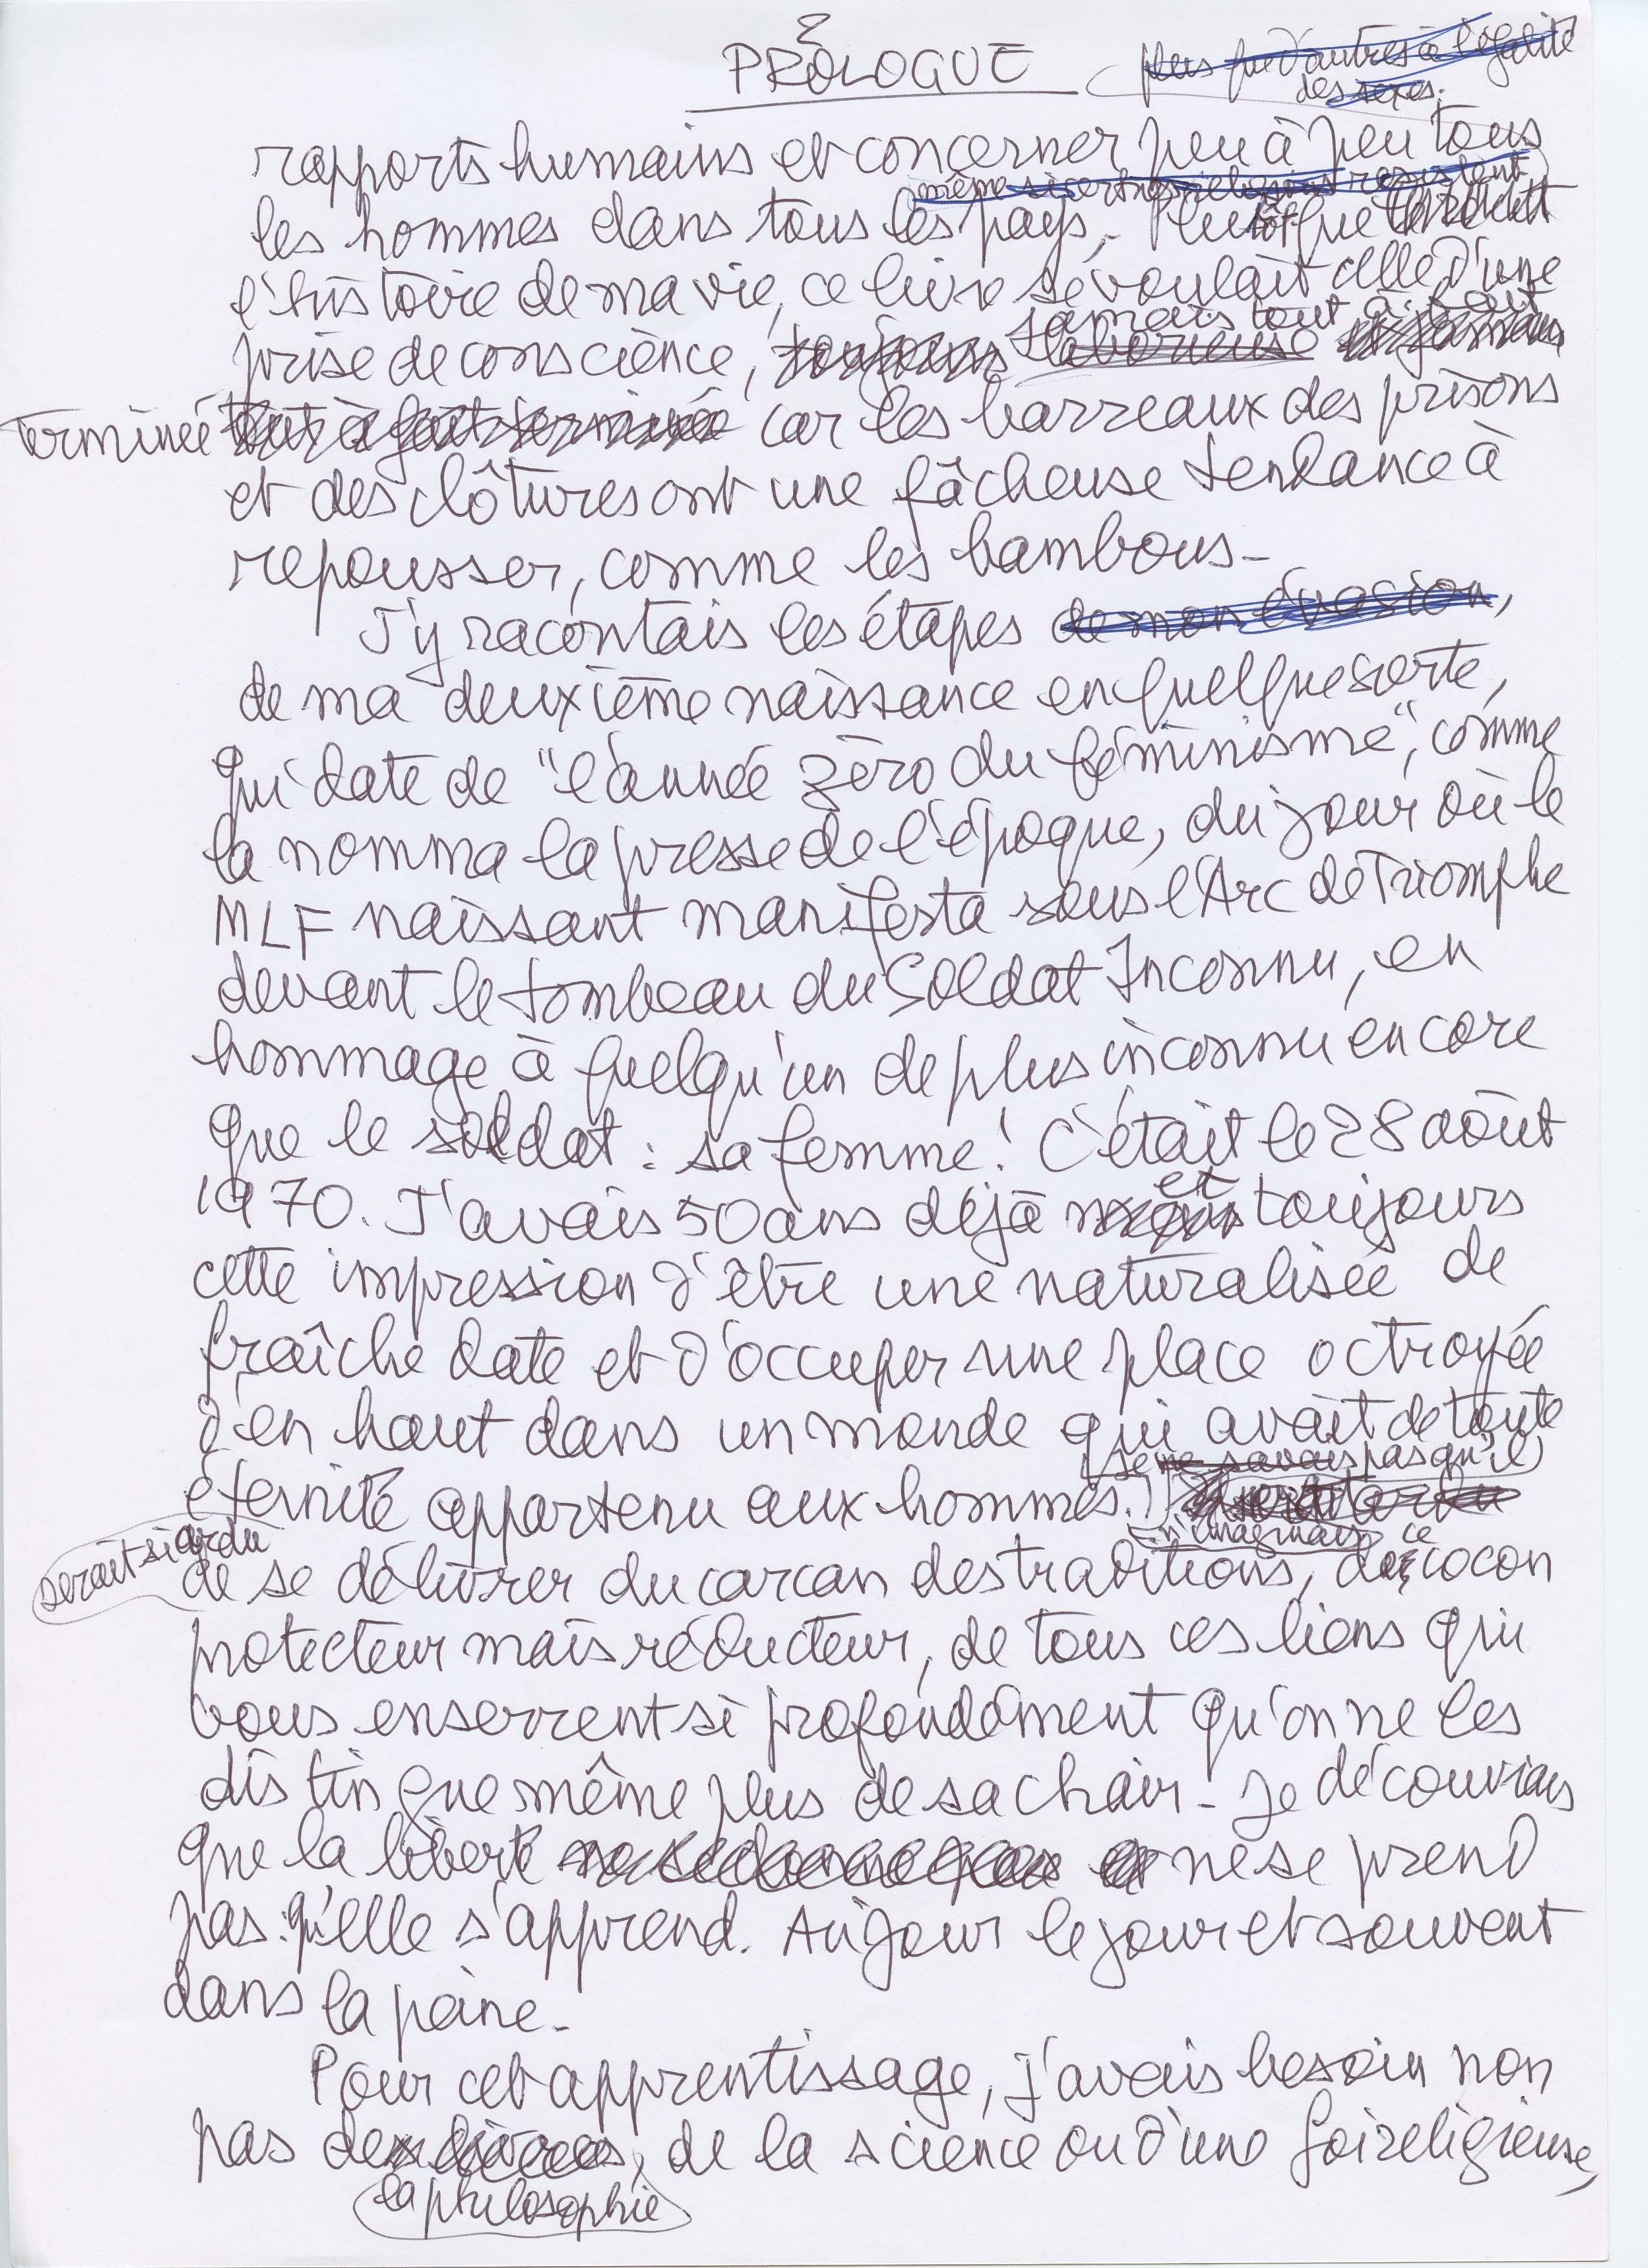 2
PROLOGUE
plus que d'autres à l'égalité
des sexes.
rapports humains et concerner peu à peu tous
même si certaines religions resistent
les hommes dans tous les pays. Plutôt que
l'histoire de ma vie, ce livre se voulait celle d'une
jamais tout à fait
prise de conscience, toujours laborieuse et jamais
terminée tout à fait terminée car les barreaux des prisons
et des clôtures ont une fâcheuse tendance à
repousser, comme les bambous.
J'y racontais les étapes de mon évasion,
de ma deuxième naissance en quelque sorte,
qui date de "l'année zéro du féminisme", comme
la nomma la presse de l'époque, du jour où le
MLF naissant manifesta sous l'Arc de Triomphe
devant le tombeau du Soldat Inconnu, en
hommage à quelqu'un de plus inconnu encore
que le soldat : sa femme ! C'était le 28 août
et
1970. J'avais 50 ans déjà mais toujours
cette impression d'être une naturalisée de
fraîche date et d'occuper une place octroyée
d'en haut dans un monde qui avait de toute
(je ne savais pas qu'il)
éternité appartenu aux hommes.
n'imaginais ce
serait si ardu
de se délivrer du carcan des traditions, de cocon
protecteur mais réducteur, de tous ces liens qui
vous enserrent si profondément qu'on ne les
distingue même plus de sa chair. Je découvrais
que la liberté ne se donne pas ne se prend
pas : qu'elle s'apprend. Au jour le jour et souvent
dans la peine.
Pour cet apprentissage, j'avais besoin non
pas de, de la science ou d'une foi religieuse,
la philosophie